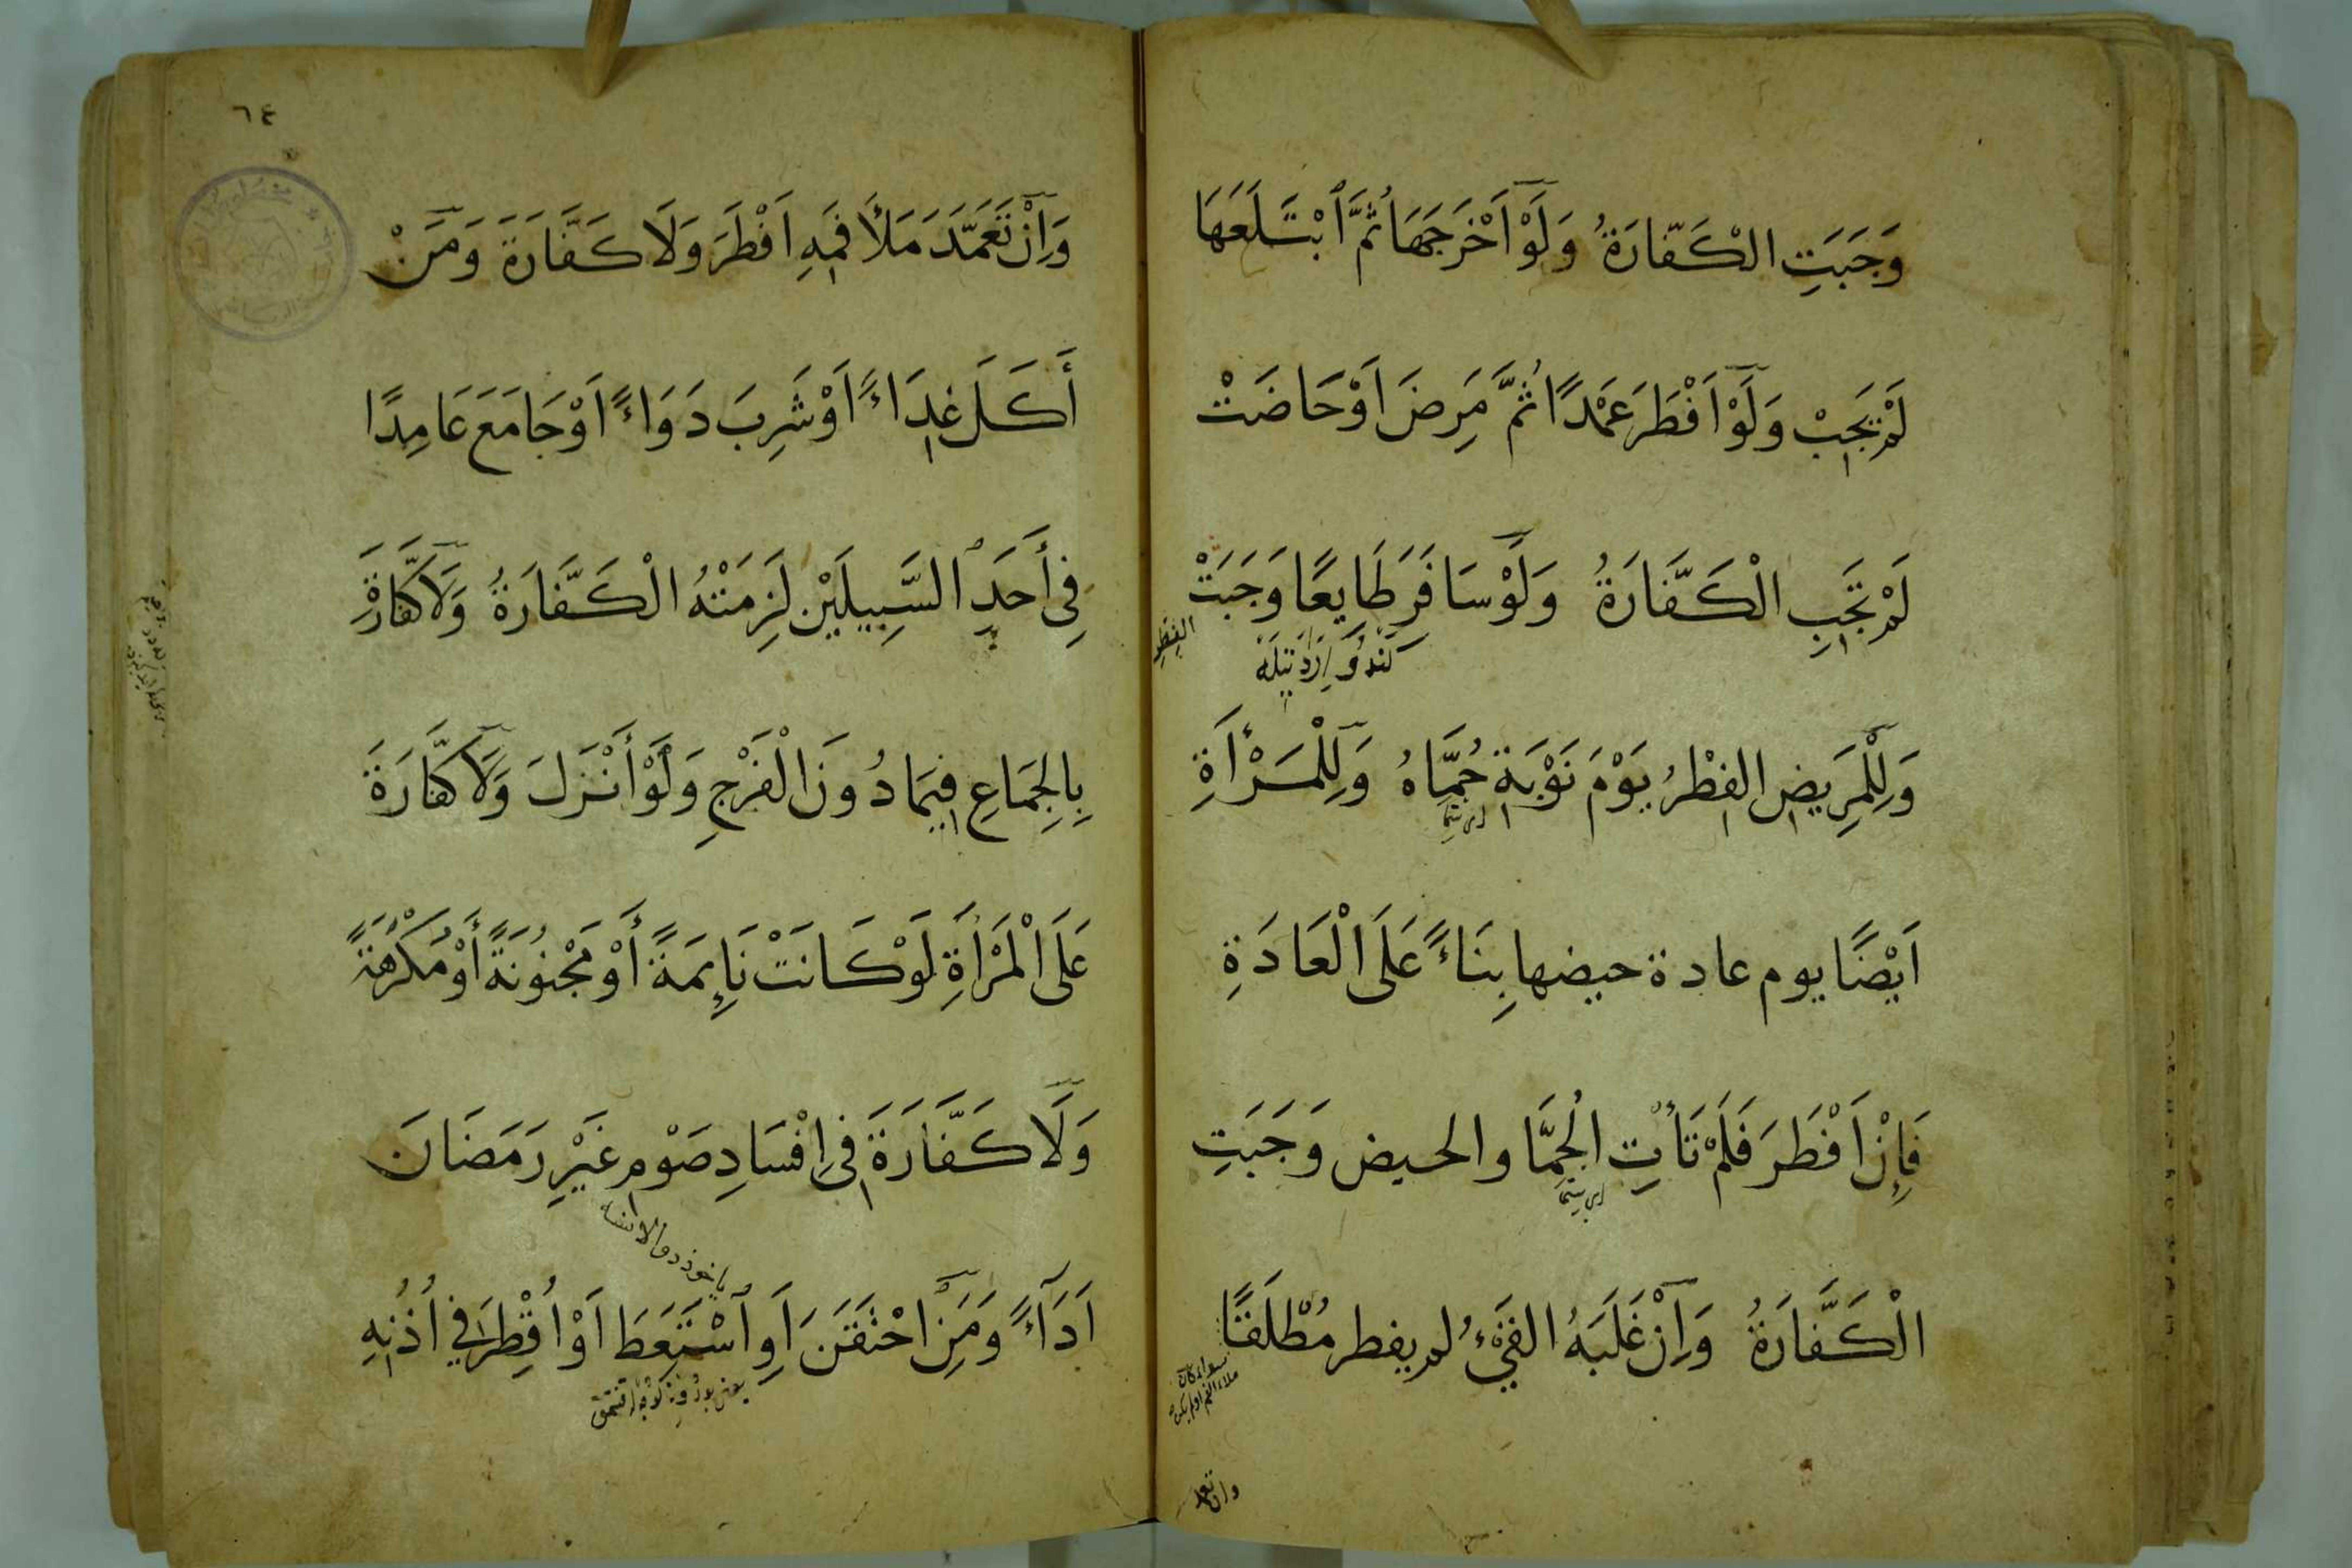 وَجَبَتِ الْكَفَّارَةُ وَلَوْ اَخْرَجَهَا ثُمَّ ابْتَلَعَهَا
لَمْ يَجِبْ وَلَوْ اَفْطَرَ عَمْدًا ثُمَّ مَرِضَ اَوْ حَاضَتْ
لَمْ تَجِبِ الْكَفَّارَةُ وَلَوْ سَافَرَ طَايِعًا وَجَبَتْ
الفِطْرِ
وَلِلْمَرِيضِ الفِطْرُ يَوْمَ نَوْبَةِ حُمَّاهُ وَلِلْمَرْأَةِ
اَيْضًا يوم عادة حيضها بِنَاءً عَلَى الْعَادَةِ
فَإِنْ اَفْطَرَ فَلَمْ تَأْتِ الْحُمَّا والحيض وَجَبَتِ
الْكَفَّارَةُ وَاِنْ غَلَبَهُ القَيْءُ لم يفطر مُطْلَقًا
سواء كان
ملاء الفم اولم يكن
وان تعمد
٦٤
وَاِنْ تَعَمَّدَ مَلْأَ فَمِهِ اَفْطَرَ وَلَا كَفَّارَةَ وَمَنْ
أَكَلَ غِدَاءً اَوْ شَرِبَ دَوَاءً اَوْ جَامَعَ عَامِدًا
فِي أَحَدِ السَّبِيلَيْنِ لَزِمَتْهُ الْكَفَّارَةُ وَلَا كَفَّارَةَ
بِالْجِمَاعِ فِيمَا دُونَ الْفَرْجِ وَلَوْ أَنْزَلَ وَلَا كَفَّارَةَ
عَلَى الْمَرْأَةِ لَوْ كَانَتْ نَائِمَةً أَوْ مَجْنُونَةً أَوْ مُكْرَهَةً
وَلَا كَفَّارَةَ فِي اِفْسَادِ صَوْمِ غَيْرِ رَمَضَانَ
اَدَآءً وَمَنِ احْتَقَنَ اَوِ اسْتَعَطَ اَوْ اُقْطِرَ فِي اُذُنِهِ